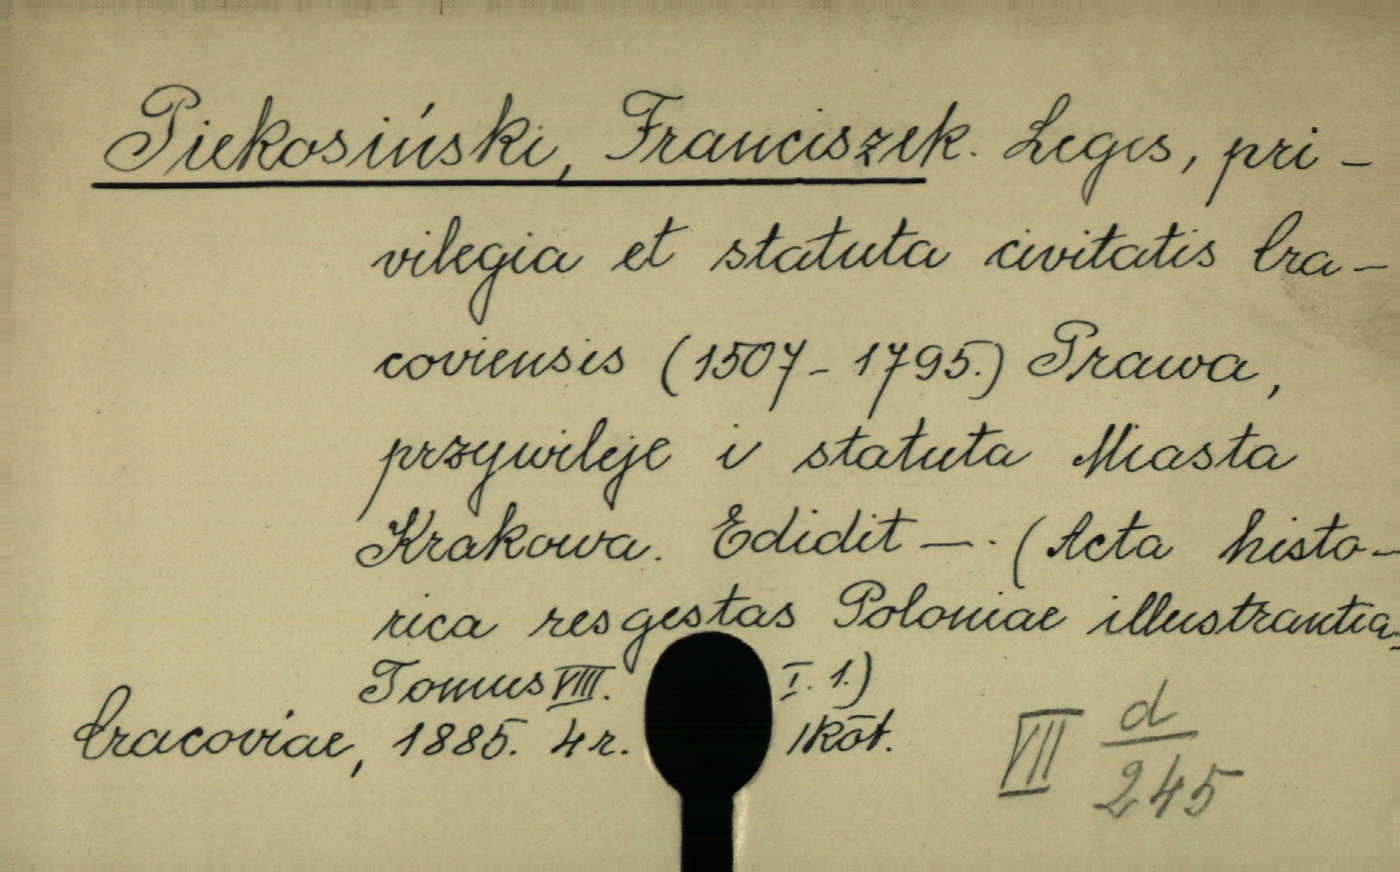 Piekosiński, Franciszek. Leges, pri-
vilegia et statuta civitatis Cra-
coviensis (1507-1795.) Prawa,
przywileje i statuta Miasta
Krakowa. Edidit —. (Acta histo-
rica res gestas Poloniae illustrantia,
Tomus VIII. I. 1.)
Cracoviae, 1885. 4r. 1 köt.
VII d/245